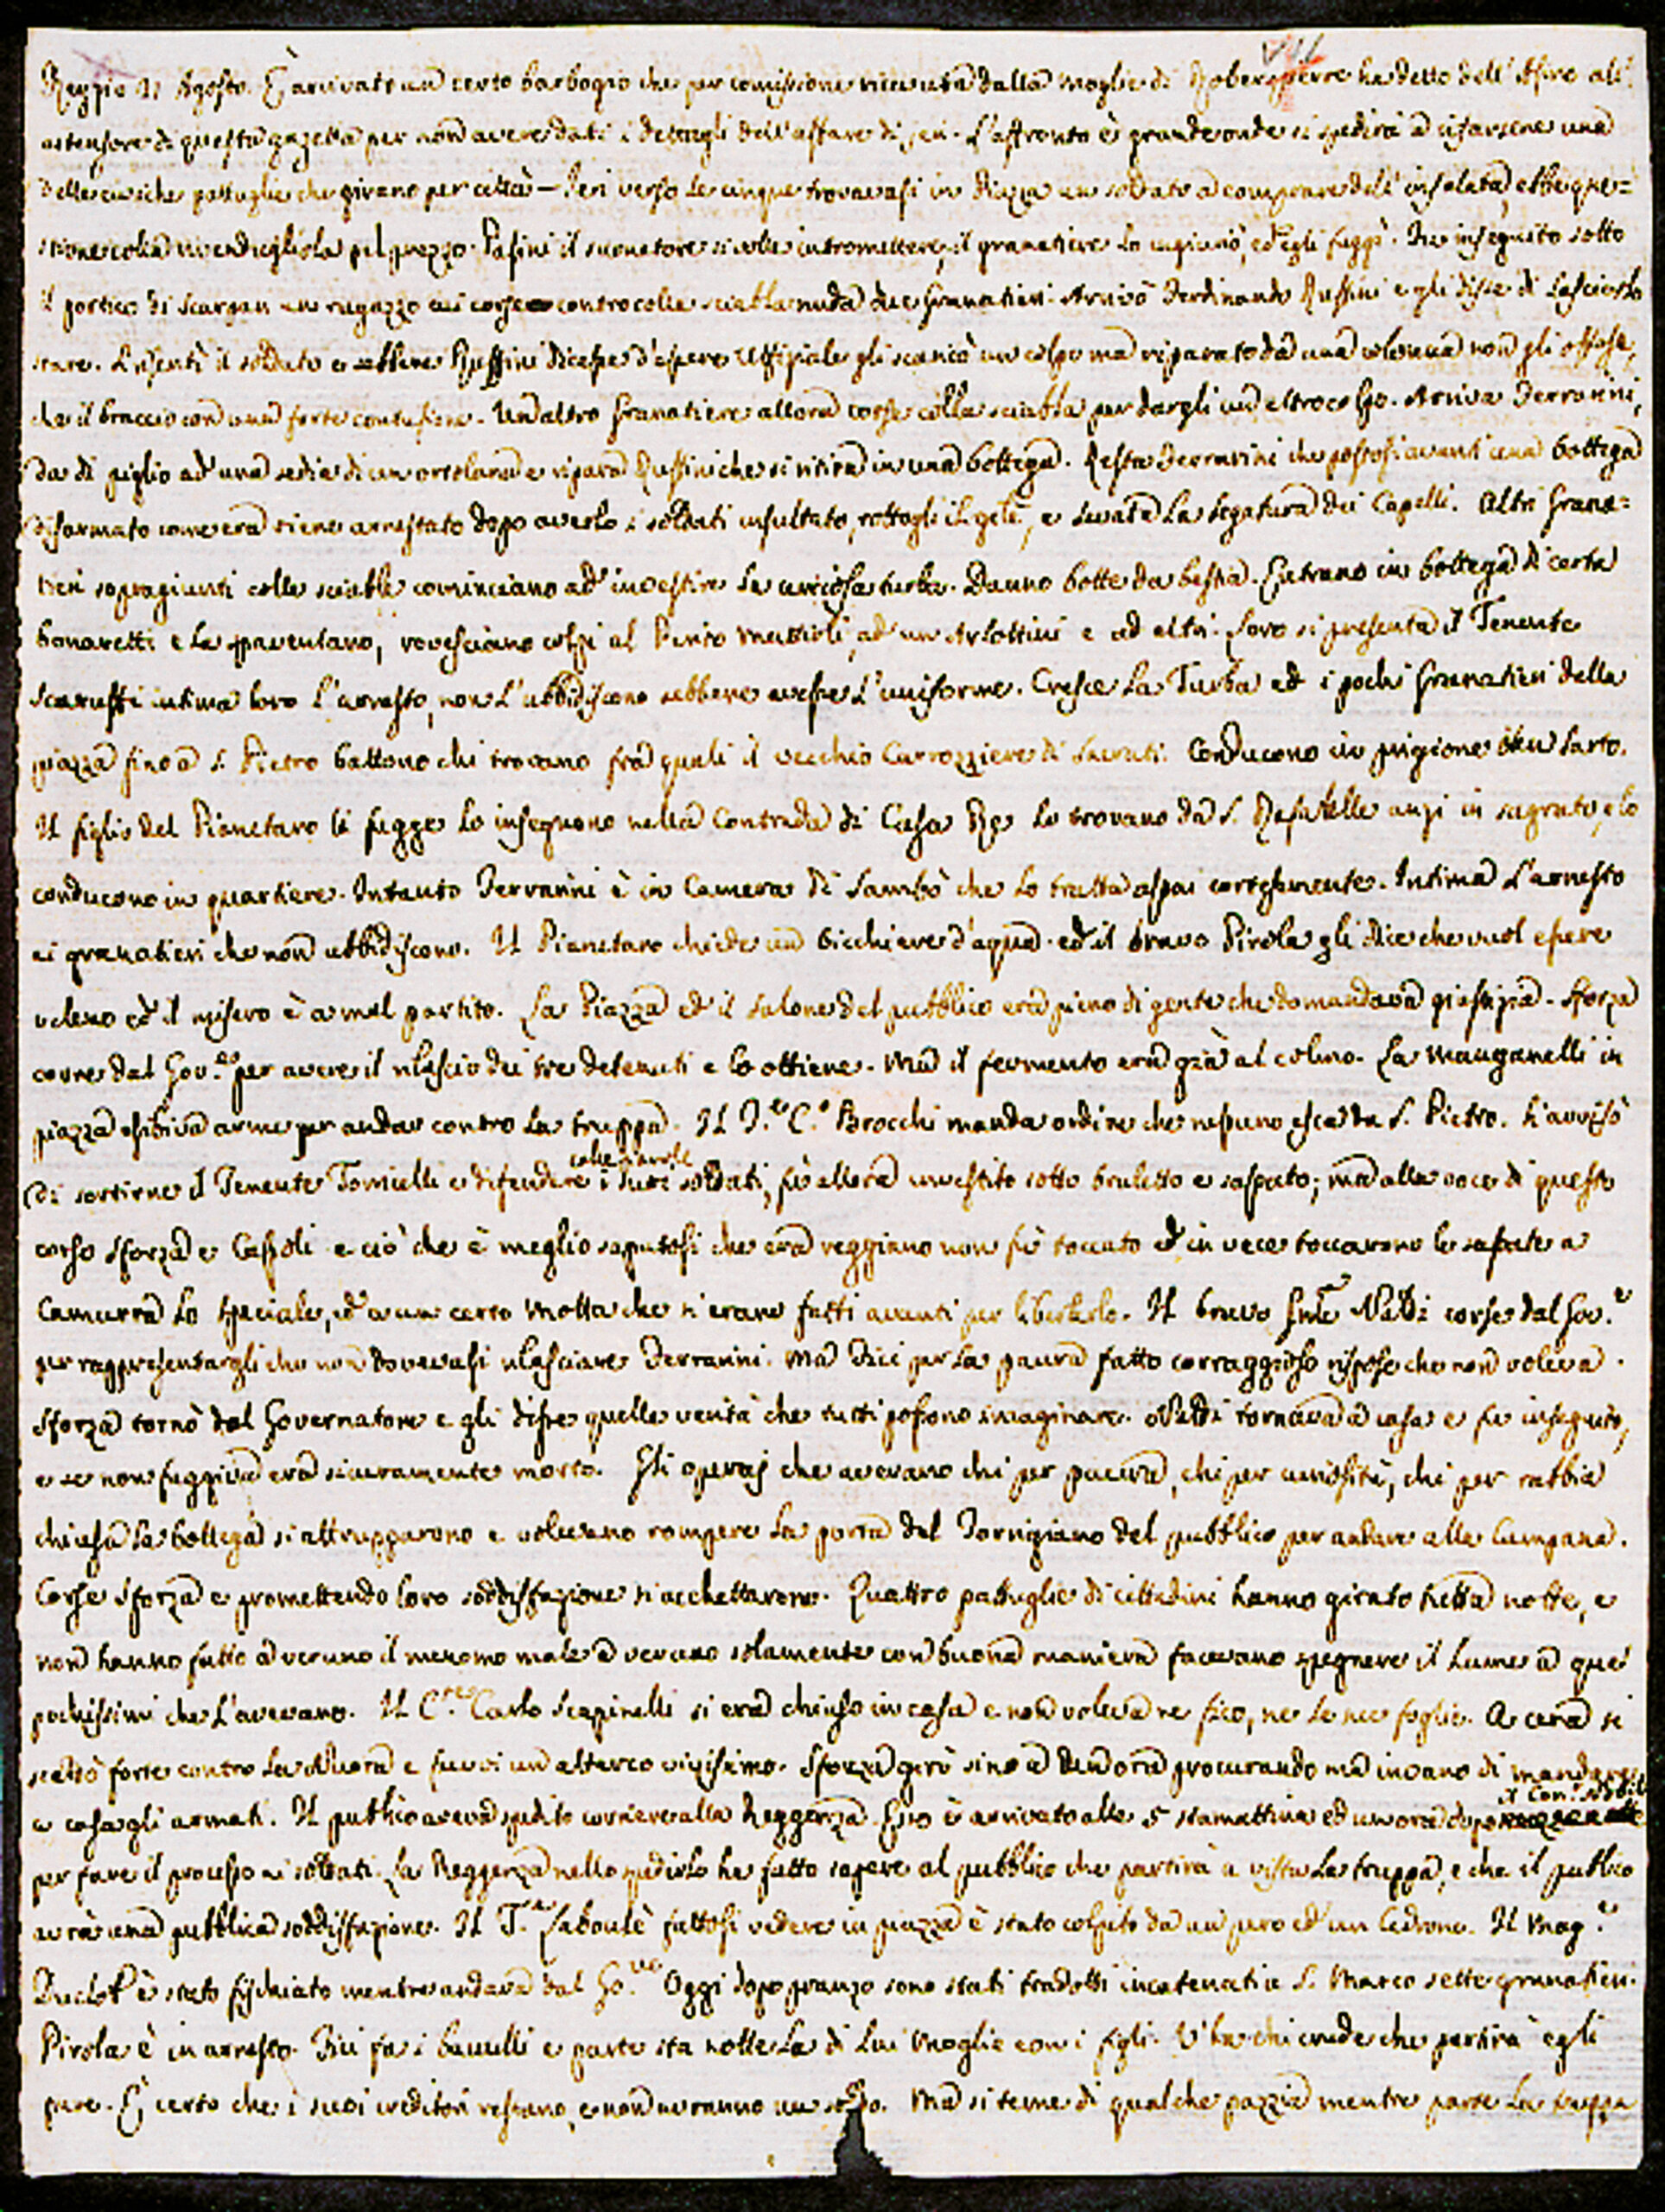 Reggio 21 Agosto. È arrivato un certo barbogio che per comissione ricevuta dalla moglie di Roberspierre ha detto dell'Asino all'
estensore di questa gazetta per non avere dati i dettagli dell'affare di jeri. L'affronto è grande onde si spedirà a rifarsene una
delle civiche pattuglie che girano per città — Jeri verso le cinque trovavasi in Piazza un soldato a comprare dell'insalata, ebbe que=
stione colla rivendugliola pel prezzo. Pasini il suonatore si volle intromettere, il granatiere lo ingiuriò, ed egli fuggì. Fu inseguito sotto
il portico di Scargan un ragazzo cui corse contro colla sciabla nuda due Granatieri. Arrivò Ferdinando Ruffini e gli disse di lasciarlo
stare. Risentì il soldato e sebbene Ruffini dicesse d'essere Uffiziale gli scaricò un colpo ma riparato da una colonna non gli offese,
che il braccio con una forte contusione. Un altro Granatiere allora corse colla sciabla per dargli un altro colpo. Arriva Ferrarini,
da di piglio ad una sedia di un ortolano e ripara Ruffini che si ritira in una bottega. Resta Ferrarini che postosi avanti una bottega
disarmato come era viene arrestato dopo averlo i soldati insultato, rottogli il gilè, e levata la legatura dei Capelli. Altri Grana=
tieri sopragiunti colle sciable cominciano ad investire la curiosa turba. Danno botte da bestia. Entrano in bottega di certa
Bonaretti e la spaventano, rovesciano colpi al Perito Mattioli, ad un Arlottini e ad altri. Loro si presenta il Tenente
Scaruffi intima loro l'arresto, non l'ubbidiscono sebbene avesse l'uniforme. Cresce la Turba ed i pochi Granatieri della
piazza fino a S. Pietro battono chi trovano frà quali il vecchio Carrozziere di Sacrati. Conducono in prigione un Sarto.
Il figlio del Pianetaro li fugge lo inseguono nella Contrada di Casa Re lo trovano da S. Rafaelle anzi in sagrato, e lo
conducono in quartiere. Intanto Ferrarini è in Camera di Sambò che lo tratta assai cortesemente. Intima l'arresto
ai granatieri che non ubbidiscono. Il Pianetaro chiede un bicchiere d'aqua ed il bravo Pirola gli dice che vuol essere
veleno ed il misero è a mal partito. La Piazza ed il salone del pubblico era pieno di gente che domandava giustizia. Sforza
corre dal Gov.re per avere il rilascio dei tre detenuti e lo ottiene. Ma il fermento era già al colmo. La Manganelli in
piazza esibiva arme per andar contro la truppa. Il T.te C.o Brocchi manda ordine che nessuno esca da S. Pietro. L'avvisò
di sortirne il Tenente Tomielli e difendere colle parole i suoi soldati, fù allora investito sotto broletto e sassato; ma alla voce di questo
corso Sforza e Cassoli e ciò che è meglio saputosi che era reggiano non fù toccato ed in vece toccarono le sassate a
Camurra lo speciale, ed a un certo Motta che si erano fatti avanti per liberarlo. Il bravo Naldi corse dal Gov.e
per rappresentargli che non dovevasi rilasciare Ferrarini. Ma Dici per la paura fatto corraggioso rispose che non voleva.
Sforza tornò dal Governatore e gli disse quelle verità che tutti possono imaginare. Naldi tornava a casa e fu inseguito,
e se non fuggiva era sicuramente morto. Gli operaj che avevano chi per paura, chi per curiosità, chi per rabbia
chiusa la bottega si attrupparono e volevano rompere la porta del Torrigiano del pubblico per andare alla Campana.
Corse Sforza e promettendo loro soddisfazione si acchettarono. Quattro pattuglie di cittadini hanno girato tutta notte, e
non hanno fatto a veruno il menomo male a veruno solamente con buona maniera facevano spegnere il lume a que'
pochissimi che l'avevano. Il C.te Carlo Scapinelli si era chiuso in casa e non voleva ne fico, ne le sue foglie. A cena si
scaldò forte contro la Nuora e fuvvi un alterco vivissimo. Sforza girò sino a un'ora procurando ma invano di mandare
a casa gli armati. Il publico aveva spedito corriere alla Reggenza. Esso è arrivato alle 5 stamattina ed un'ora dopo il Con.
per fare il processo ai soldati. La Reggenza nello spedirlo ha fatto sapere al pubblico che partirà a vista la truppa, e che il publico
avrà una pubblica soddisfazione. Il T.e Laboulè fattosi vedere in piazza è stato colpito da un pero ed un Cedrone. Il Mag.e
Duclot è stato fischiato mentre andava dal Go.re Oggi dopo pranzo sono stati tradotti incatenati a S. Marco sette granatieri.
Pirola è in arresto. Dici fa i baulli e parte sta notte la di lui Moglie con i figli. V'ha chi crede che partirà egli
pure. È certo che i suoi creditori restano, e non avranno un soldo. Ma si teme di qualche pazzia mentre parte la truppa